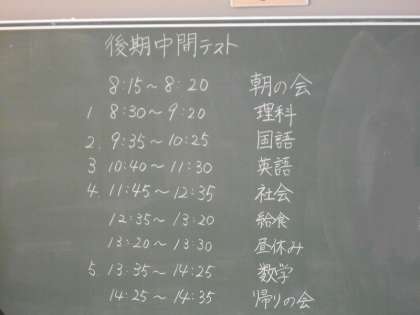 後期中間テスト
8:15～8:20 朝の会
1 8:30～9:20 理科
2. 9:35～10:25 国語
3 10:40～11:30 英語
4. 11:45～12:35 社会
12:35～13:20 給食
13:20～13:30 昼休み
5. 13:35～14:25 数学
14:25～14:35 帰りの会